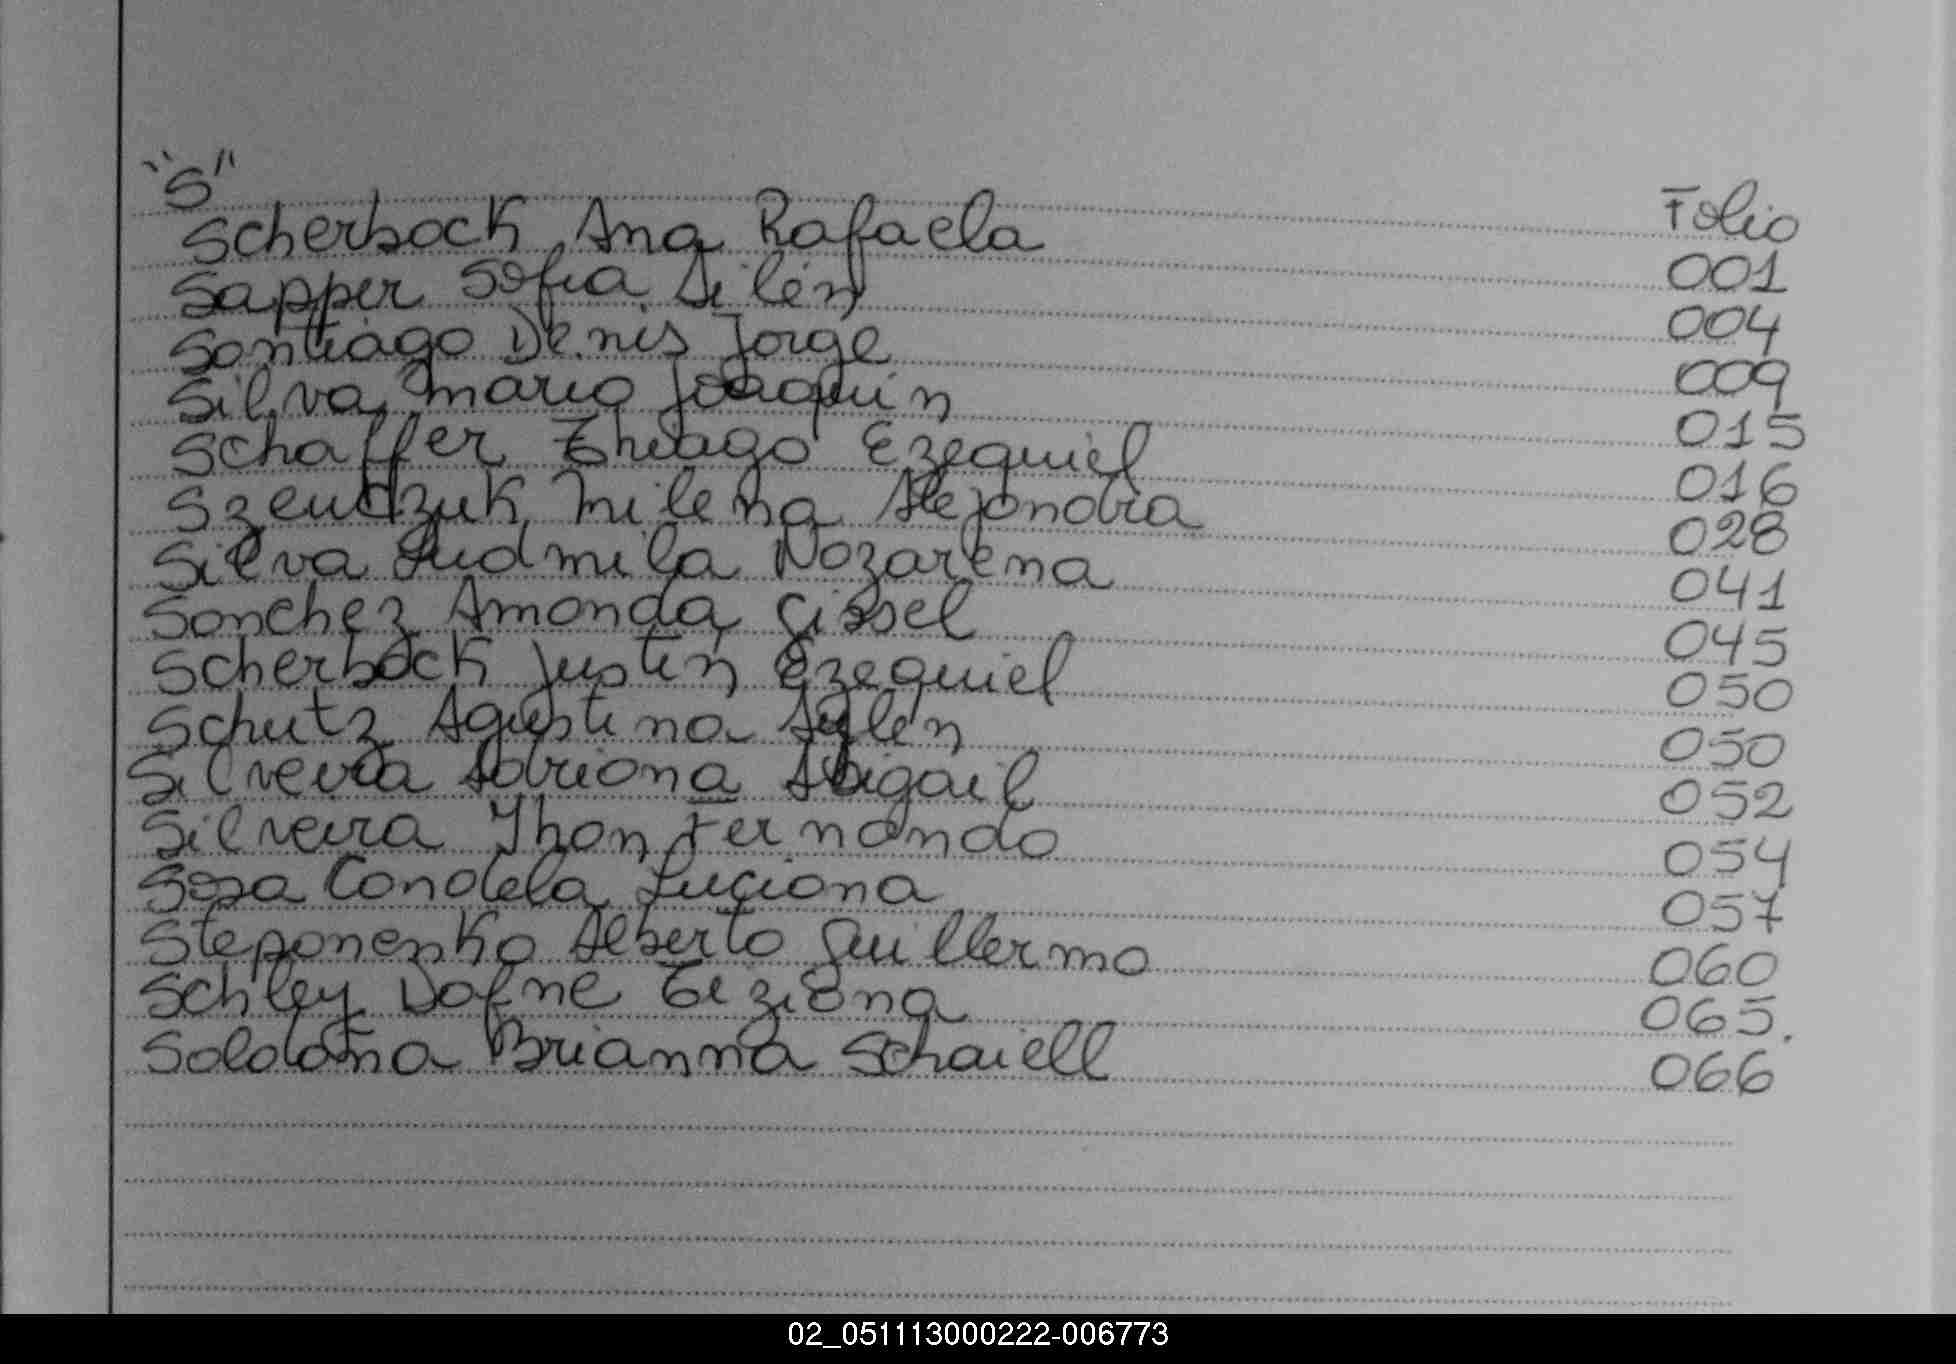 "S"
Folio
Scherback Ana Rafaela 001
Sapper Sofia Ailén 004
Santiago Denis Jorge 009
Silva Mario Joaquin 015
Schaffer Thiago Ezequiel 016
Szewdzuk Milena Alejandra 028
Silva Ludmila Nazarena 041
Sanchez Amanda Gissel 045
Scherback Justin Ezequiel 050
Schutz Agustina Aylén 050
Silveira Adriana Abigail 052
Silveira Jhon Fernando 054
Sosa Candela Luciana 057
Steponenko Alberto Guillermo 060
Schley Dafne Tiziana 065.
Soldaña Brianna Schaiell 066
02_051113000222-006773